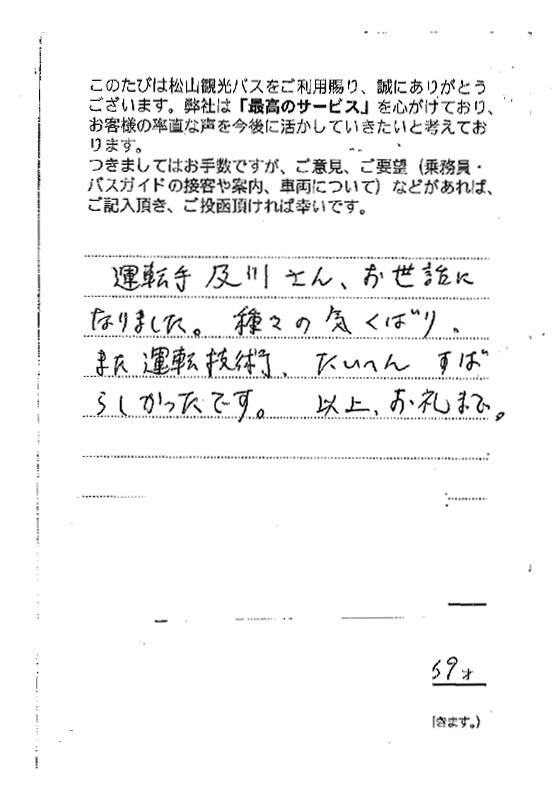 このたびは松山観光バスをご利用賜り、誠にありがとう
ございます。弊社は「最高のサービス」を心がけており、
お客様の率直な声を今後に活かしていきたいと考えてお
ります。
つきましてはお手数ですが、ご意見、ご要望（乗務員・
バスガイドの接客や案内、車両について）などがあれば、
ご記入頂き、ご投函頂ければ幸いです。
運転手 及川さん、お世話に
なりました。種々の気くばり、
また運転技術、たいへん すば
らしかったです。 以上、お礼まで。
59才
きます。）